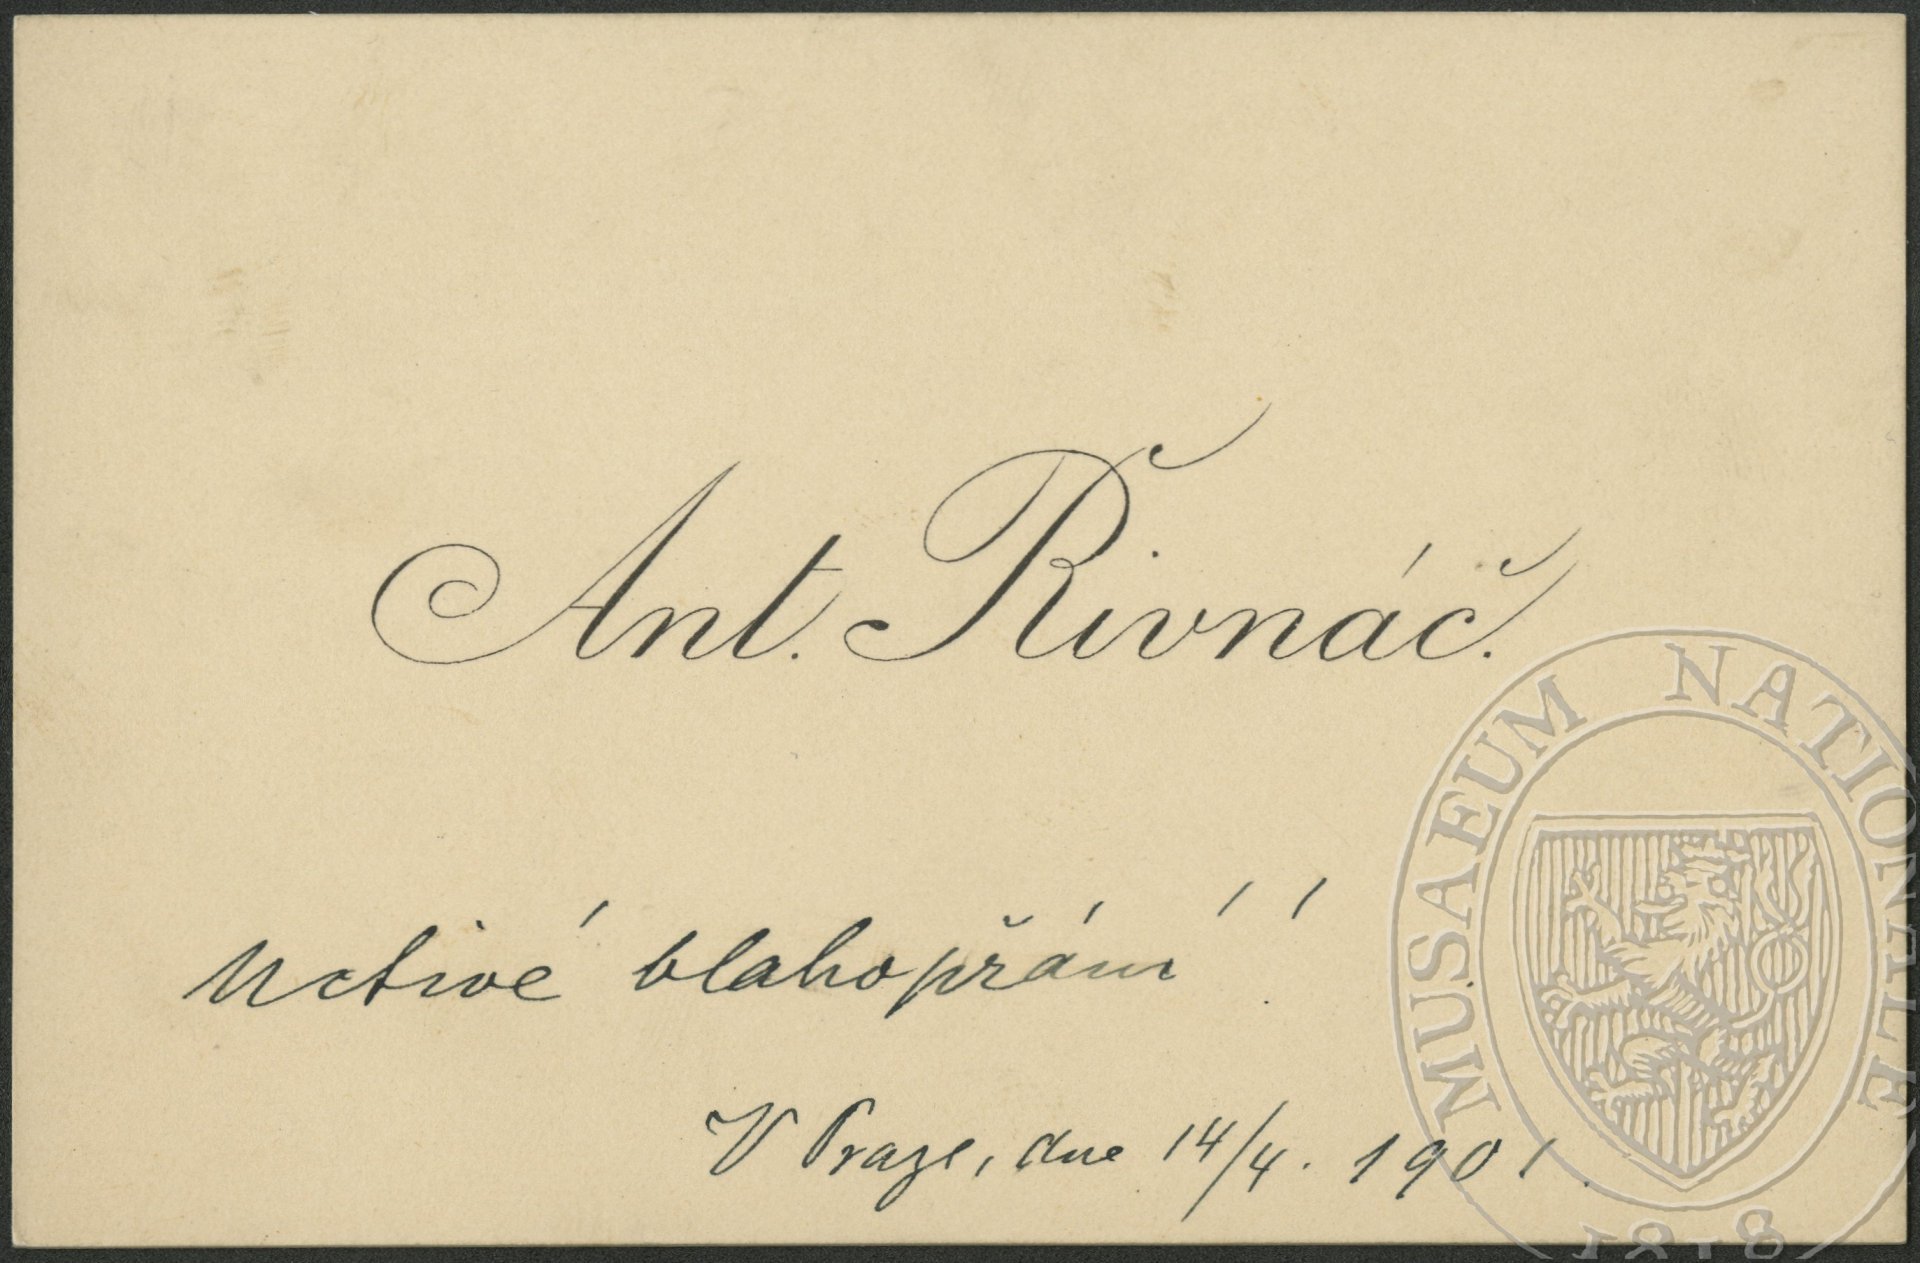 Ant. Řivnáč.
Uctivé blahopřání!
V Praze, dne 14/4. 1901.
MUSAEUM NATIONALE
1818